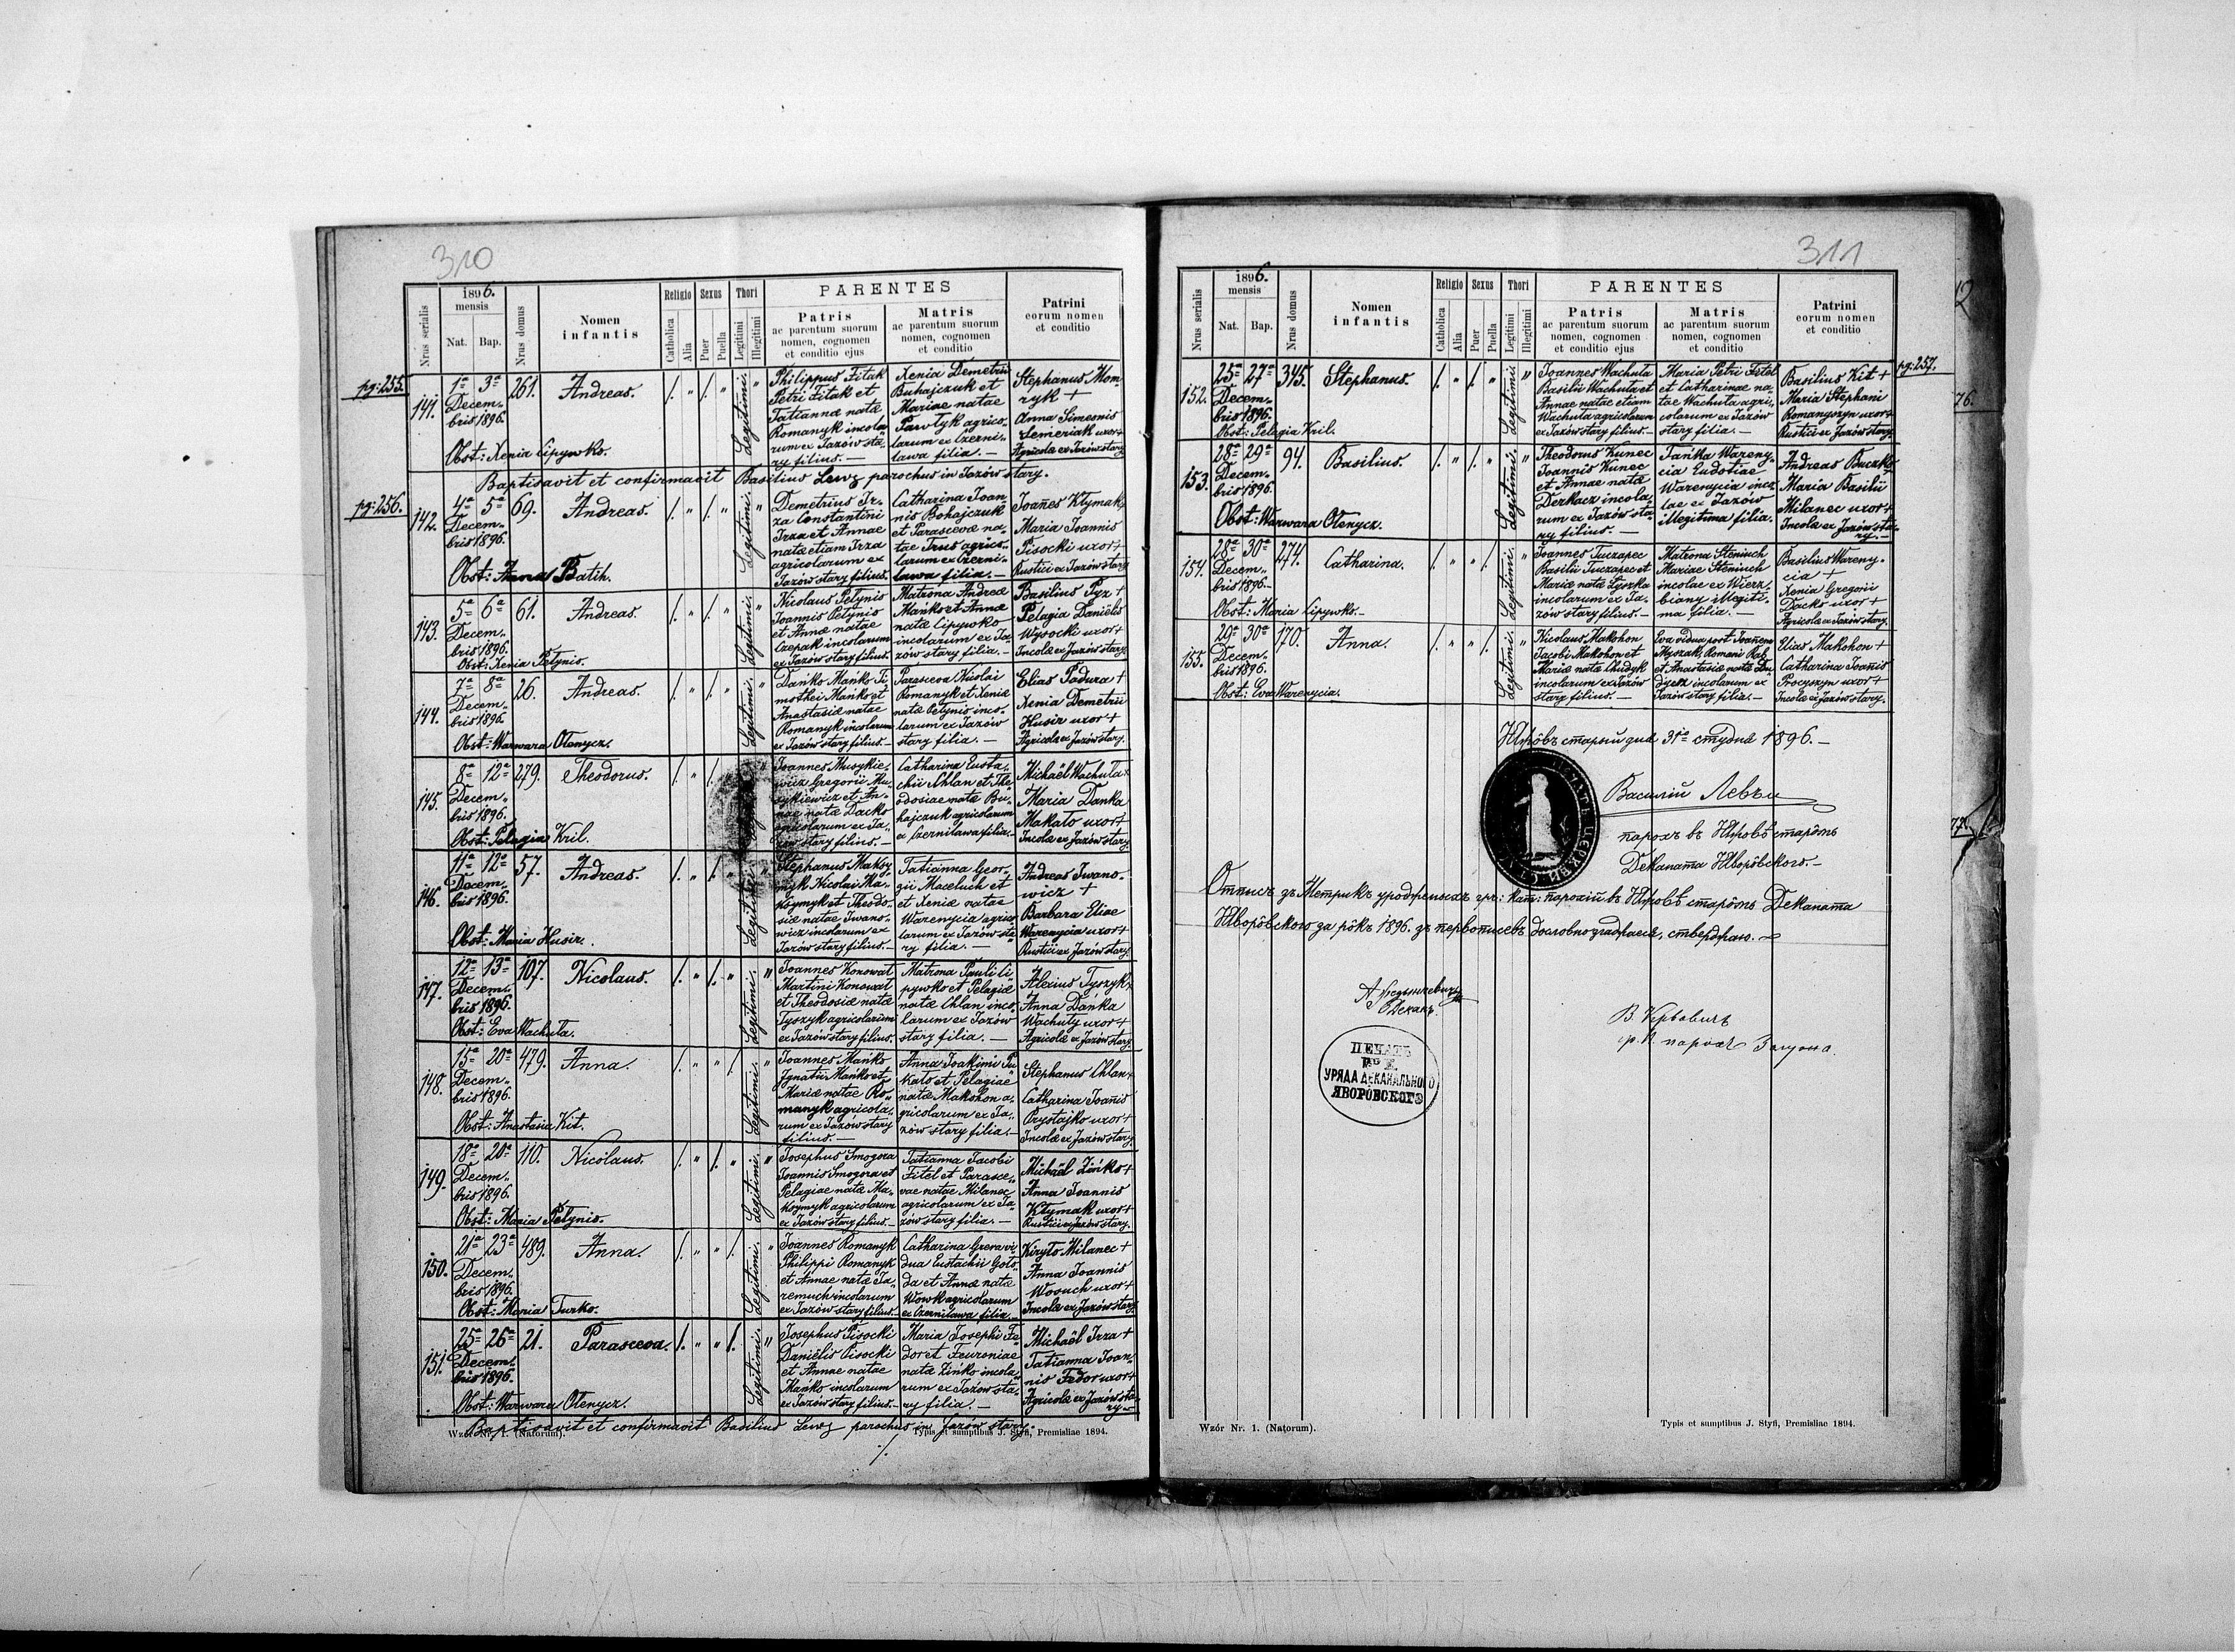 310
1896.
mensis
Nrus serialis
Nat.
Bap.
Nrus domus
Nomen
infantis
Religio
Catholica
Alia
Sexus
Puer
Puella
Thori
Legitimi
Illegitimi
PARENTES
Patris
ac parentum suorum
nomen, cognomen
et conditio ejus
Matris
ac parentum suorum
nomen, cognomen
et conditio
Patrini
eorum nomen
et conditio
pg: 255.
141.
1ª 3ª 261. Andreas.
Decem„
bris 1896.
Obst: Xenia Lipywko.
Legitimi.
Philippus Fitak
Petri Fitak et
Tatiannæ natæ
Romanyk incola„
rum ex Jazów sta„
ry filius. —
Xenia Demetrii
Buhajczuk et
Mariae natae
Pawłyk agrico„
larum ex Czerni„
lawa filia. —
Stephanus Mom
ryk +
Anna Simeonis
Semeriak uxor+
Agricolæ ex Jazów stary.
Baptisavit et confirmavit Basilius Lewz parochus in Jazów stary.
pg: 256.
142.
4ª 5ª 69. Andreas.
Decem„
bris 1896.
Obst: Anna Batih.
Legitimi.
Demetrius Ir„
za Constantini
Irza et Annae
natæ etiam Irza
agricolarum ex
Jazów stary filius.
Catharina Joan„
nis Bohajczuk
et Parascevæ na„
tae Irus agrico„
larum ex Czerni„
lawa filia. —
Joañes Kłymak+
Maria Joannis
Pisocki uxor+
Rustici ex Jazów stary
143.
5ª 6ª 61. Andreas.
Decem„
bris 1896.
Obst: Xenia Petynis.
Legitimi.
Nicolaus Petynis
Joannis Petynis
et Annæ natae
Czepak incolarum
ex Jazów stary filius.
Matrona Andreæ
Mańko et Annæ
natæ Lipywko
incolarum ex Ja„
zów stary filia. —
Basilius Pyz +
Pelagia Daniêlis
Wysocki uxor+
Incolæ ex Jazów stary.
144.
7ª 8ª 26. Andreas.
Decem„
bris 1896.
Obst: Warwara Otenycz.
Legitimi.
Dańko Mańko Ti„
mothei Mańko et
Anastasiæ natae
Romanyk incolarum
ex Jazów stary filius. —
Parasceva Nicolai
Romanyk et Xeniæ
natæ Petynis inco„
larum ex Jazów
stary filia. —
Elias Padura +
Xenia Demetrii
Husir uxor +
Agricolæ ex Jazów stary.
145.
8ª 12ª 279. Theodorus.
Decem„
bris 1896.
Obst: Pelagia Kril.
Joannes Musykie„
wicz Gregorii Mu„
sykiewicz et An„
nae natæ Dacko
agricolarum ex Ja„
zów stary filius. —
Catharina Eusta„
chii Chlan et The„
odosiae natæ Bu„
hajczuk agricolarum
ex Czernilawa filia. —
Michaêl Wachuta+
Maria Danka
Makało uxor+
Incolæ ex Jazów stary.
146.
11ª 12ª 57. Andreas.
Decem„
bris 1896.
Obst: Maria Husir.
Legitimi.
Stephanus Maksy„
myk Nicolai Ma„
ksymyk et Theodo„
siæ natae Iwano„
wicz incolarum ex
Jazów stary filius. —
Tatianna Geor„
gii Maceluch et
et Xeniæ natae
Warenycia agrico„
larum ex Jazów sta„
ry filia. —
Andreas Iwano„
wicz +
Barbara Eliae
Warenycia uxor+
Rustici ex Jazów stary.
147.
12ª 13ª 107. Nicolaus.
Decem„
bris 1896.
Obst: Eva Wachuta.
Legitimi.
Joannes Konowat
Martini Konowat
et Theodosiæ natæ
Tyszyk agricolarum
ex Jazów stary filius.
Matrona Pauli Li„
pywko et Pelagiæ
natæ Chlan inco„
larum ex Jazów
stary filia. —
Alexius Tyszyk+
Anna Dańka
Wachuty uxor+
Agricolæ ex Jazów stary.
148.
15ª 20ª 479. Anna.
Decem„
bris 1896.
Obst: Anastasia Kit.
Legitimi.
Joannes Mańko
Ignatii Mańko et
Mariæ natae Ro„
manyk agricola„
rum ex Jazów stary
filius. —
natæ Makohon a„
gricolarum ex Ja„
zów stary filia. —
Stephanus Chlan+
Catharina Joañis
Prystajko uxor+
Incolæ ex Jazów stary.
149.
18ª 20ª 110. Nicolaus.
Decem„
bris 1896.
Obst: Maria Petynis.
Legitimi.
Josephus Smogora
Joannis Smogora et
Pelagiae natæ Ma„
ksymyk agricolarum
ex Jazów stary filius. —
Tatianna Jacobi
Fitel et Parasce„
vae natae Milanec
agricolarum ex Ja„
zów stary filia. —
Michaêl Zińko+
Anna Joannis
Kłymak uxor+
Rustici ex Jazów stary.
150.
21ª 23ª 489. Anna.
Decem„
bris 1896.
Obst: Maria Turko.
Legitimi.
Joannes Romanyk
Philippi Romanyk
et Annae natæ Ja„
remuch incolarum
ex Jazów stary filius. —
Catharina Grera vi„
dua Eustachii Goło„
da et Annæ natæ
Wowk agricolarum
ex Czernilawa filia. —
Kiryło Milanec +
Anna Joannis
Wovuch uxor+
Incolæ ex Jazów stary.
151.
25ª 26ª 21. Parasceva.
Decem„
bris 1896.
Obst: Warwara Otenycz.
Legitimi.
Josephus Pisocki
Daniêlis Pisocki
et Annae natae
Mańko incolarum
ex Jazów stary filius. —
Maria Josephi Fe„
dor et Feuroniae
natæ Zińko incola„
rum ex Jazów sta„
ry filia. —
Michaêl Irza +
Tatianna Joan„
nis Fedor uxor+
Agricolæ ex Jazów sta„
ry. —
Baptisavit et confirmavit Basilius Lewz parochus in Jazów stary.
Wzór Nr. 1. (Natorum).
Typis et sumptibus J. Styfi, Premisliae 1894.
311
1896.
mensis
Nrus serialis
Nat.
Bap.
Nrus domus
Nomen
infantis
Religio
Catholica
Alia
Sexus
Puer
Puella
Thori
Legitimi
Illegitimi
PARENTES
Patris
ac parentum suorum
nomen, cognomen
et conditio ejus
Matris
ac parentum suorum
nomen, cognomen
et conditio
Patrini
eorum nomen
et conditio
pg: 257.
152.
25ª 27ª 345. Stephanus.
Decem„
bris 1896.
Obst: Pelagia Kril.
Legitimi.
Joannes Wachuta
Basilii Wachuta et
Annae natae etiam
Wachuta agricolarum
ex Jazów stary filius. —
Maria Petri Fitel
et Catharinae na„
tae Wachuta agri„
colarum ex Jazów
stary filia. —
Basilius Kit +
Maria Stephani
Romanyszyn uxor+
Rustici ex Jazów stary.
153.
28ª 29ª 94. Basilius.
Decem„
bris 1896.
Obst: Warwara Otenycz.
Legitimi.
Theodorus Kunec
Joannis Kunec
et Annae natæ
Derkacz incola„
rum ex Jazów sta„
ry filius. —
Tańka Wareny„
cia Eudotiae
Warenycia inco„
lae ex Jazów
illegitima filia.
Andreas Buczko+
Maria Basilii
Milanec uxor+
Incolæ ex Jazów sta„
ry. —
154.
28ª 30ª 274. Catharina.
Decem„
bris 1896.
Obst: Maria Lipywko. —
Legitimi.
Joannes Tuczapec
Basilii Tuczapec et
Mariæ natæ Łyszka
incolarum ex Ja„
zów stary filius. —
Matrona Steniuch
Mariae Steniuch
incolae ex Wierz„
biany illegiti„
ma filia. —
Basilius Wareny„
cia +
Xenia Gregorii
Dacko uxor +
Agricolæ ex Jazów stary.
155.
29ª 30ª 170. Anna.
Decem„
bris 1896.
Obst: Eva Warenycia.
Legitimi.
Nicolaus Makohon
Jacobi Makohon et
Mariæ natæ Chudyk
incolarum ex Jazów
stary filius. —
Eva vidua post Joañem
incolarum ex
Jazów stary filia. —
Elias Makohon +
Catharina Joañis
Procyszyn uxor+
Incolæ ex Jazów stary.
Язôвъ старый дня 31го студня 1896. —
Василій Левъ
парохъ въ Язовѣ старôмъ
Деканата Яворôвского. —
Отписъ зъ Метрикъ уродженыхъ гр: кат: парохіи въ Язовѣ старôмъ Деканата
Яворôвского за рôкъ 1896. зъ первописевъ дословно згаджаєся, стверджаю. —
Деканъ.
ПЕЧАТЬ
УРЯДА ДЕКАНАЛЬНОГО
ЯВОРÔВСКОГО
Wzór Nr. 1. (Natorum).
Typis et sumptibus J. Styfi, Premisliae 1894.
76.
77.